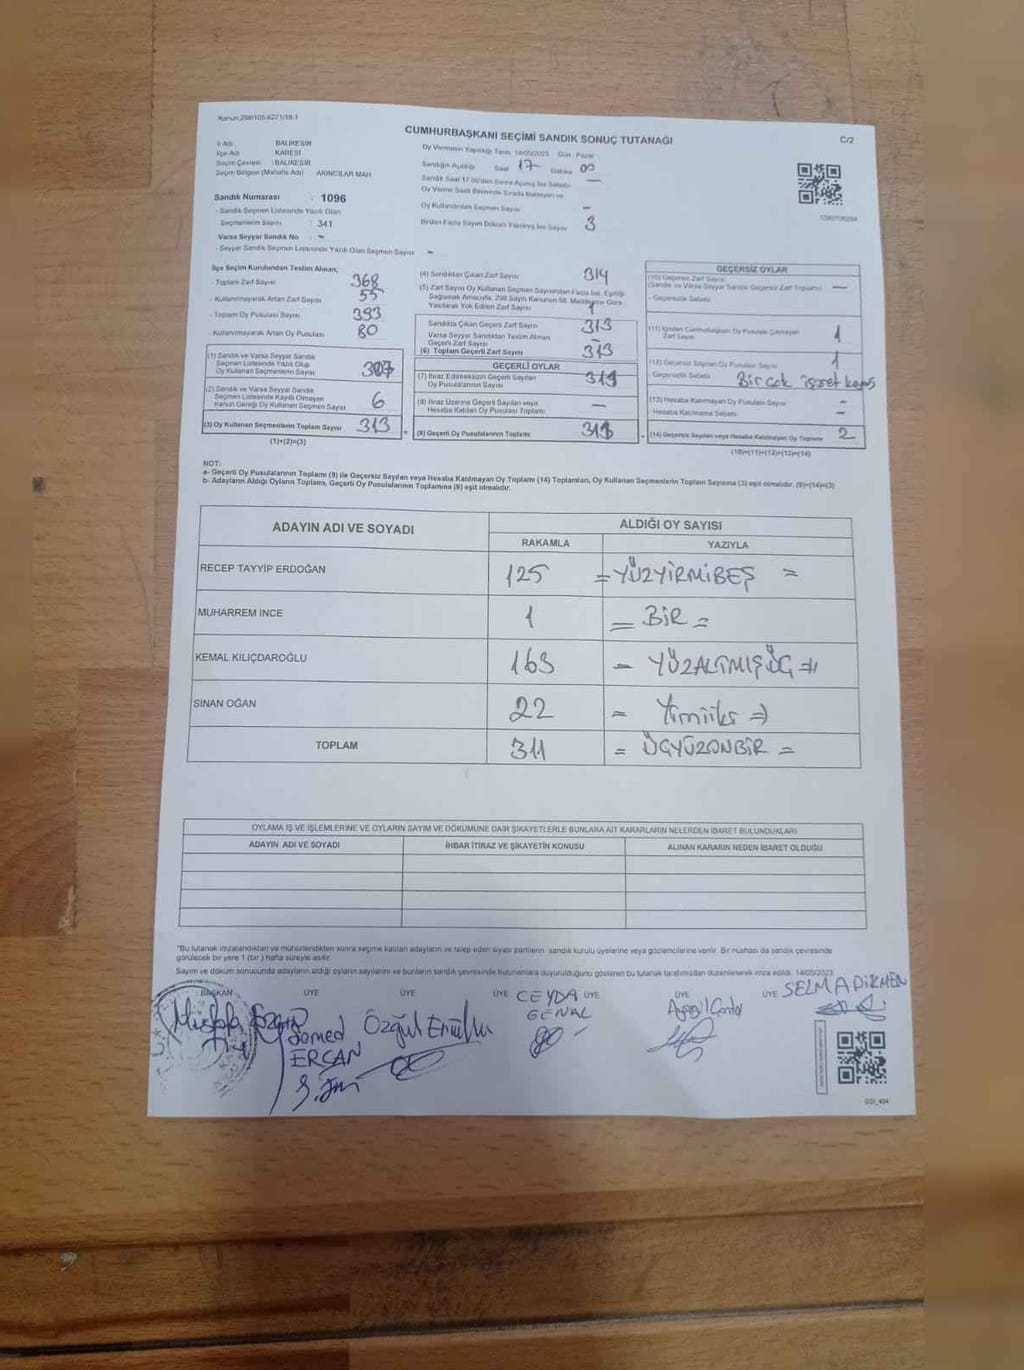 Kanun:298/105.6271/18-1
CUMHURBAŞKANI SEÇİMİ SANDIK SONUÇ TUTANAĞI
C/2
İl Adı : BALIKESİR
İlçe Adı : KARESİ
Seçim Çevresi : BALIKESİR
Seçim Bölgesi (Mahalle Adı) AKINCILAR MAH
Oy Vermenin Yapıldığı Tarih: 14/05/2023 Gün : Pazar
Sandığın Açıldığı Saat 17 Dakika 00
Sandık Numarası : 1096
- Sandık Seçmen Listesinde Yazılı Olan
Seçmenlerin Sayısı : 341
Varsa Seyyar Sandık No : -
- Seyyar Sandık Seçmen Listesinde Yazılı Olan Seçmen Sayısı -
Oy Kullandırılan Seçmen Sayısı -
Birden Fazla Sayım Döküm Yapılmış İse Sayısı 3
İlçe Seçim Kurulundan Teslim Alınan;
- Toplam Zarf Sayısı 368
- Kullanılmayarak Artan Zarf Sayısı 55
- Toplam Oy Pusulası Sayısı 393
- Kullanılmayarak Artan Oy Pusulası 80
(1) Sandık ve Varsa Seyyar Sandık
Seçmen Listesinde Yazılı Olup
Oy Kullanan Seçmenlerin Sayısı 307
(2) Sandık ve Varsa Seyyar Sandık
Seçmen Listesinde Kaydı Olmayan
Kanun Gereği Oy Kullanan Seçmen Sayısı 6
(3) Oy Kullanan Seçmenlerin Toplam Sayısı 313
(1)+(2)=(3)
(4) Sandıktan Çıkan Zarf Sayısı 314
(5) Zarf Sayısı Oy Kullanan Seçmen Sayısından Fazla İse, Eşitliği
Sağlamak Amacıyla, 298 Sayılı Kanunun 98. Maddesine Göre
Yakılarak Yok Edilen Zarf Sayısı 1
Sandıkta Çıkan Geçerli Zarf Sayısı 313
Varsa Seyyar Sandıktan Teslim Alınan
Geçerli Zarf Sayısı -
(6) Toplam Geçerli Zarf Sayısı 313
GEÇERLİ OYLAR
(7) İtiraz Edilmeksizin Geçerli Sayılan
Oy Pusulalarının Sayısı
(8) İtiraz Üzerine Geçerli Sayılan veya
Hesaba Katılan Oy Pusulası Toplamı —
(9) Geçerli Oy Pusulalarının Toplamı
GEÇERSİZ OYLAR
(10) Geçersiz Zarf Sayısı
(Sandık ve Varsa Seyyar Sandık Geçersiz Zarf Toplamı) —
- Geçersizlik Sebebi
(11) İçinden Cumhurbaşkanı Oy Pusulası Çıkmayan
Zarf Sayısı 1
(12) Geçersiz Sayılan Oy Pusulası Sayısı 1
Geçersizlik Sebebi Birçok işaret
(13) Hesaba Katılmayan Oy Pusulası Sayısı -
- Hesaba Katılmama Sebebi -
(14) Geçersiz Sayılan veya Hesaba Katılmayan Oy Toplamı 2
(10)+(11)+(12)+(13)=(14)
NOT:
a- Geçerli Oy Pusulalarının Toplamı (9) ile Geçersiz Sayılan veya Hesaba Katılmayan Oy Toplamı (14) Toplamları, Oy Kullanan Seçmenlerin Toplam Sayısına (3) eşit olmalıdır. (9)+(14)=(3)
b- Adayların Aldığı Oyların Toplamı, Geçerli Oy Pusulalarının Toplamına (9) eşit olmalıdır.
ADAYIN ADI VE SOYADI
ALDIĞI OY SAYISI
RAKAMLA YAZIYLA
RECEP TAYYİP ERDOĞAN 125 =YÜZYİRMİBEŞ =
MUHARREM İNCE 1 = BİR =
KEMAL KILIÇDAROĞLU 163 = YÜZALTMIŞÜÇ =
SİNAN OĞAN 22 = Yirmiiki =
TOPLAM 311 = ÜÇYÜZONBİR =
OYLAMA İŞ VE İŞLEMLERİNE VE OYLARIN SAYIM VE DÖKÜMÜNE DAİR ŞİKAYETLERLE BUNLARA AİT KARARLARIN NELERDEN İBARET BULUNDUKLARI
ADAYIN ADI VE SOYADI İHBAR İTİRAZ VE ŞİKAYETİN KONUSU ALINAN KARARIN NEDEN İBARET OLDUĞU
*Bu tutanak imzalandıktan ve mühürlendikten sonra seçime katılan adayların ve talep eden siyasi partilerin sandık kurulu üyelerine veya gözlemcilerine verilir. Bir nüshası da sandık çevresinde
görülecek bir yere 1 (bir) hafta süreyle asılır.
Sayım ve döküm sonucunda adayların aldığı oyların sayılarını ve bunların sandık çevresinde bulunanlara duyurulduğunu gösteren bu tutanak tarafımızdan düzenlenerek imza edildi. 14/05/2023
BAŞKAN ÜYE ÜYE ÜYE ÜYE ÜYE ÜYE
Mustafa
Samed
ERCAN
Özgül
CEYDA
GENAL
SELMA DİKMEN